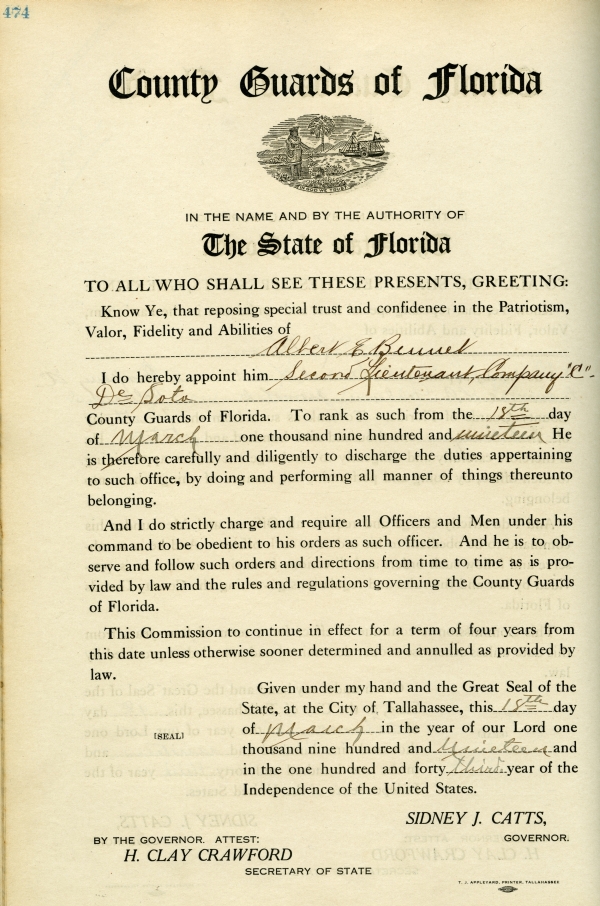 474
County Guards of Florida
IN GOD WE TRUST
IN THE NAME AND BY THE AUTHORITY OF
The State of Florida
TO ALL WHO SHALL SEE THESE PRESENTS, GREETING:
Know Ye, that reposing special trust and confidenee in the Patriotism,
Valor, Fidelity and Abilities of
Albert E. Bennet
I do hereby appoint him Second Lieutenant, Company "C"-
De Soto
County Guards of Florida. To rank as such from the 18th day
of March one thousand nine hundred and nineteen He
is therefore carefully and diligently to discharge the duties appertaining
to such office, by doing and performing all manner of things thereunto
belonging.
And I do strictly charge and require all Officers and Men under his
command to be obedient to his orders as such officer. And he is to ob-
serve and follow such orders and directions from time to time as is pro-
vided by law and the rules and regulations governing the County Guards
of Florida.
This Commission to continue in effect for a term of four years from
this date unless otherwise sooner determined and annulled as provided by
law.
Given under my hand and the Great Seal of the
State, at the City of Tallahassee, this 18th day
of March in the year of our Lord one
[SEAL]
thousand nine hundred and nineteen and
in the one hundred and forty third year of the
Independence of the United States.
SIDNEY J. CATTS,
GOVERNOR.
BY THE GOVERNOR. ATTEST:
H. CLAY CRAWFORD
SECRETARY OF STATE
T. J. APPLEYARD, PRINTER, TALLAHASSEE